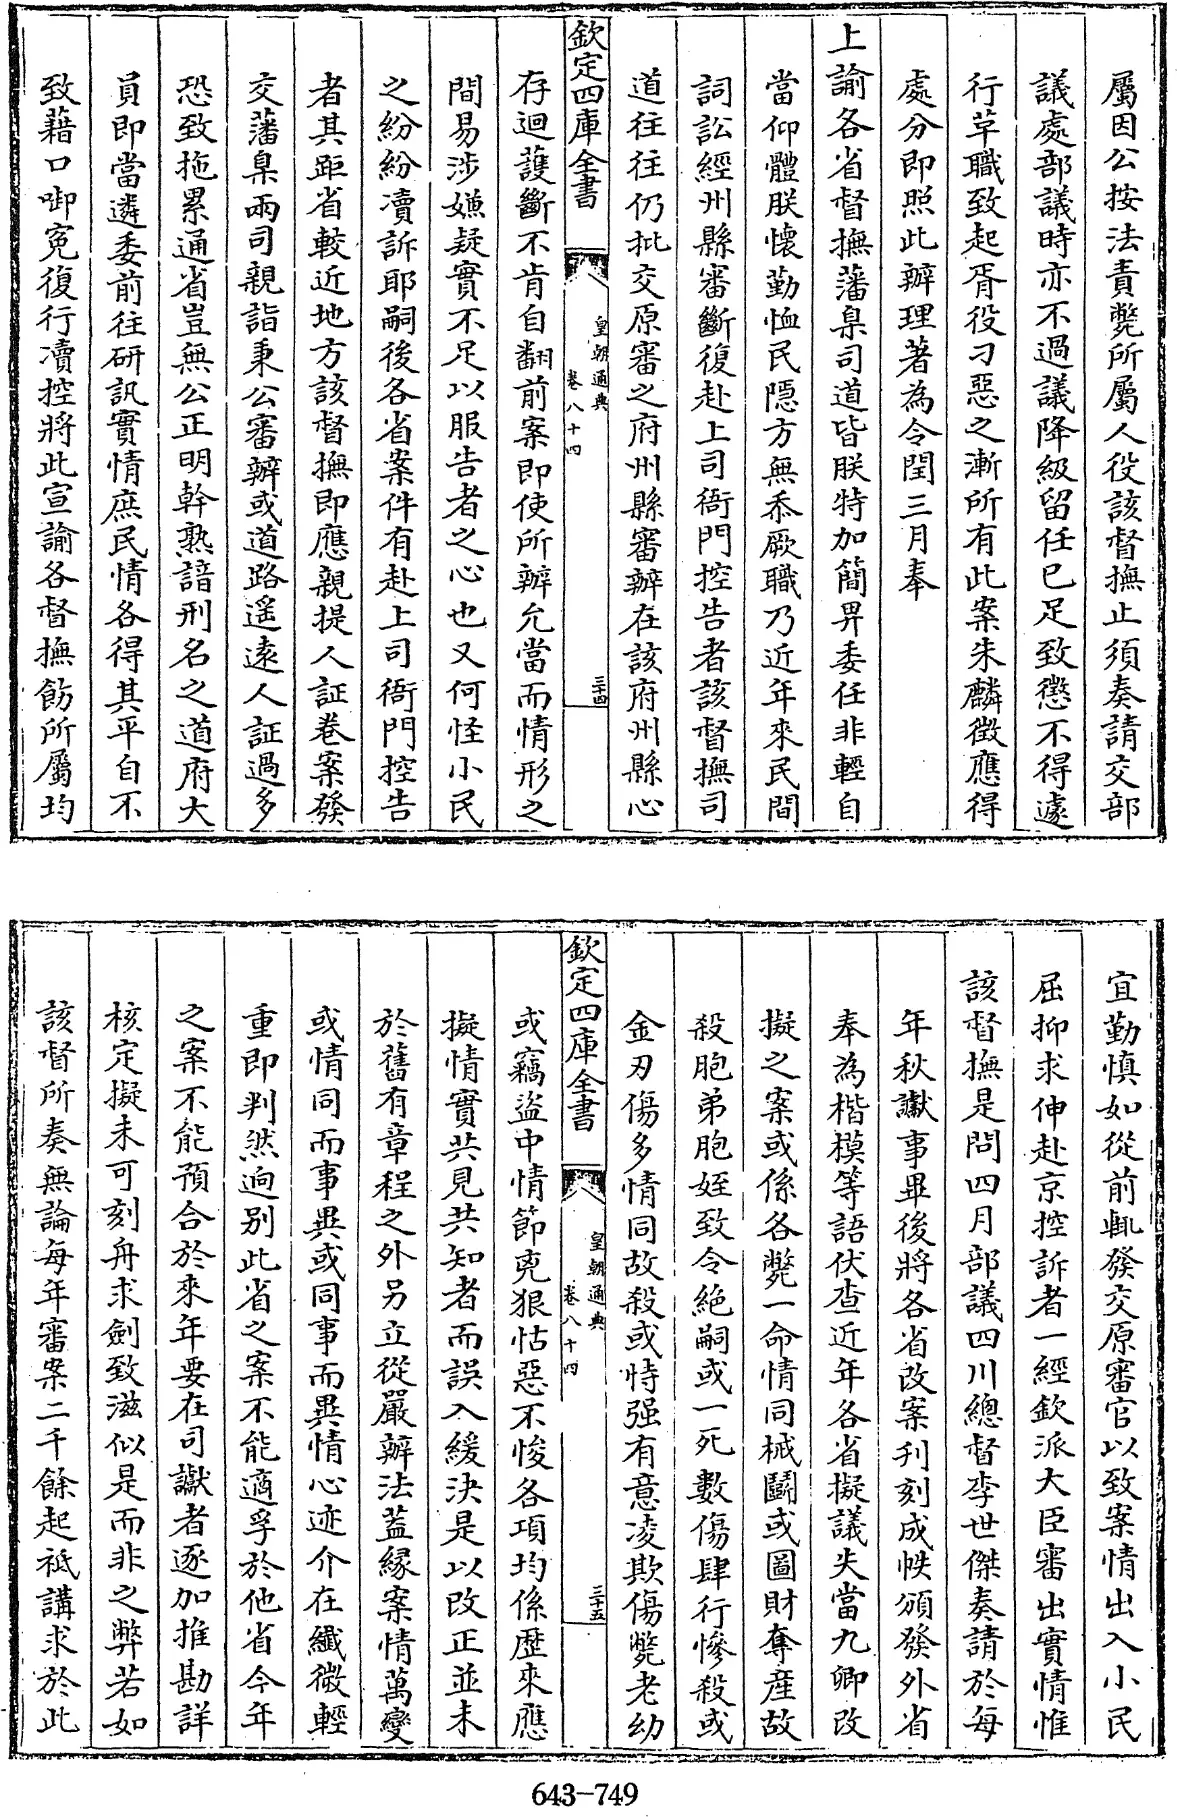 屬因公按法責斃所屬人役該督撫止須奏請交部
議處部議時亦不過議降級留任已足致懲不得遽
行革職致起胥役刁惡之漸所有此案朱麟徵應得
處分即照此辦理著為令閏三月奉
上諭各省督撫藩臬司道皆朕特加簡畀委任非輕自
當仰體朕懷勤恤民隱方無忝厥職乃近年來民間
詞訟經州縣審斷復赴上司衙門控告者該督撫司
道往往仍批交原審之府州縣審辦在該府州縣心
欽定四庫全書
皇朝通典
卷八十四
三十四
存迴護斷不肯自翻前案即使所辦允當而情形之
間易涉嫌疑實不足以服告者之心也又何怪小民
之紛紛瀆訴耶嗣後各省案件有赴上司衙門控告
者其距省較近地方該督撫即應親提人証卷案發
交藩臬兩司親詣秉公審辦或道路遙遠人証過多
恐致拖累通省豈無公正明幹熟諳刑名之道府大
員即當遴委前往研訊實情庶民情各得其平自不
致藉口啣寃復行瀆控將此宣諭各督撫飭所屬均
宜勤慎如從前輒發交原審官以致案情出入小民
屈抑求伸赴京控訴者一經欽派大臣審出實情惟
該督撫是問四月部議四川總督李世傑奏請於每
年秋讞事畢後將各省改案刋刻成帙頒發外省
奉為楷模等語伏查近年各省擬議失當九卿改
擬之案或係各斃一命情同械鬭或圖財奪產故
殺胞弟胞姪致令絕嗣或一死數傷肆行慘殺或
金刃傷多情同故殺或恃强有意凌欺傷斃老幼
欽定四庫全書
皇朝通典
卷八十四
三十五
或竊盜中情節兇狠怙惡不悛各項均係歷來應
擬情實共見共知者而誤入緩決是以改正並未
於舊有章程之外另立從嚴辦法葢緣案情萬變
或情同而事異或同事而異情心迹介在纖微輕
重即判然逈别此省之案不能適孚於他省今年
之案不能預合於來年要在司讞者逐加推勘詳
核定擬未可刻舟求劍致滋似是而非之弊若如
該督所奏無論每年審案二千餘起祗講求於此
643-749